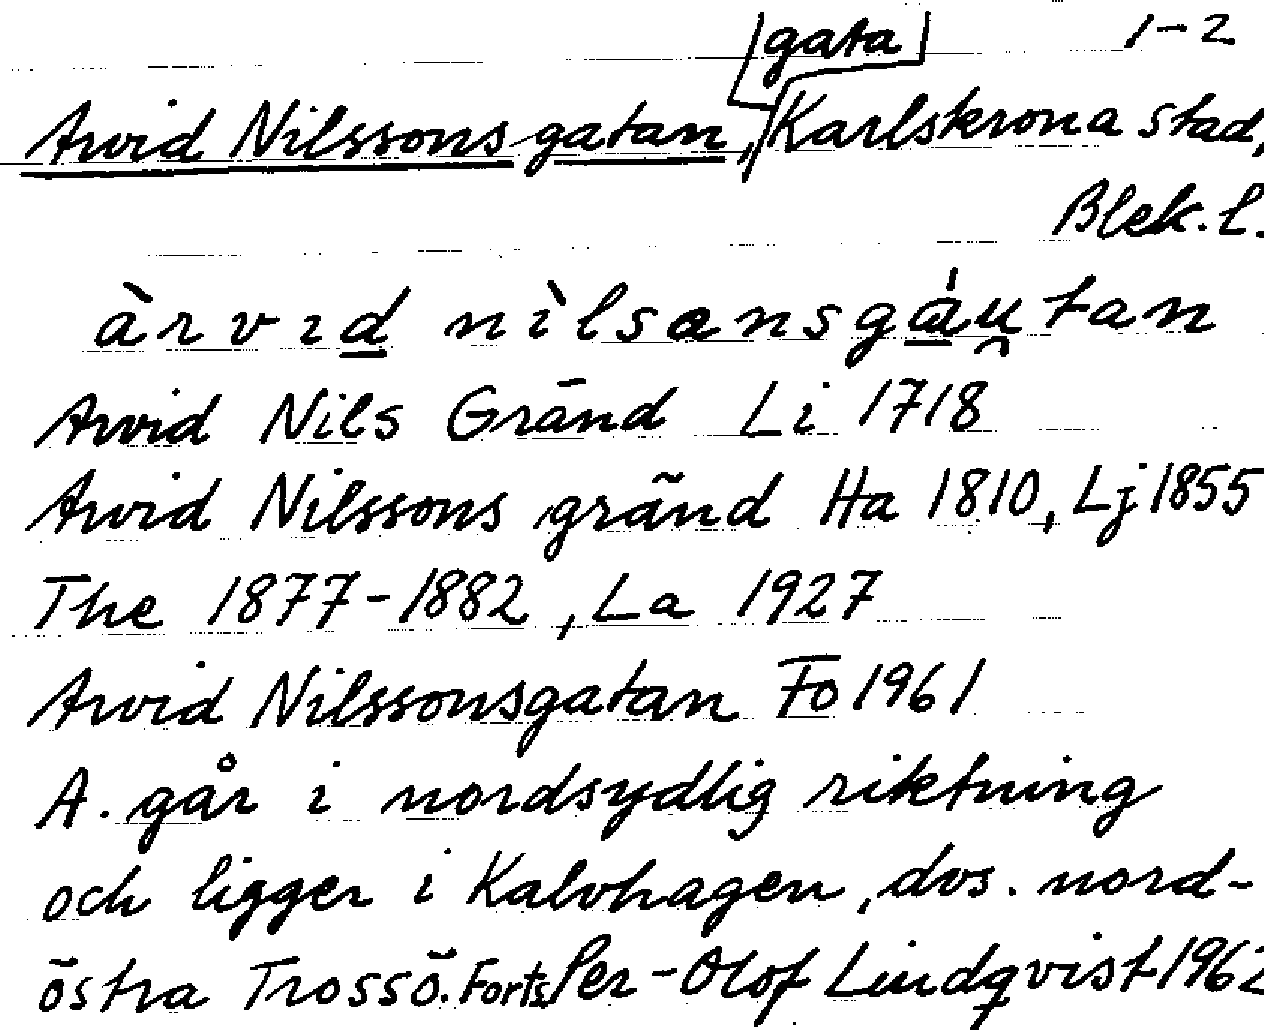 gata 1-2
Arvid Nilssonsgatan, Karlskrona stad,
Blek. l.
àrvɪd nìlsɑnsgáu̯tan
Arvid Nils Gränd Li 1718
Arvid Nilssons gränd Ha 1810, Lj 1855
The 1877-1882, La 1927
Arvid Nilssonsgatan Fo 1961
A. går i nordsydlig riktning
och ligger i Kalvhagen, dvs. nord-
östra Trossö. Forts Per-Olof Lindqvist 1962